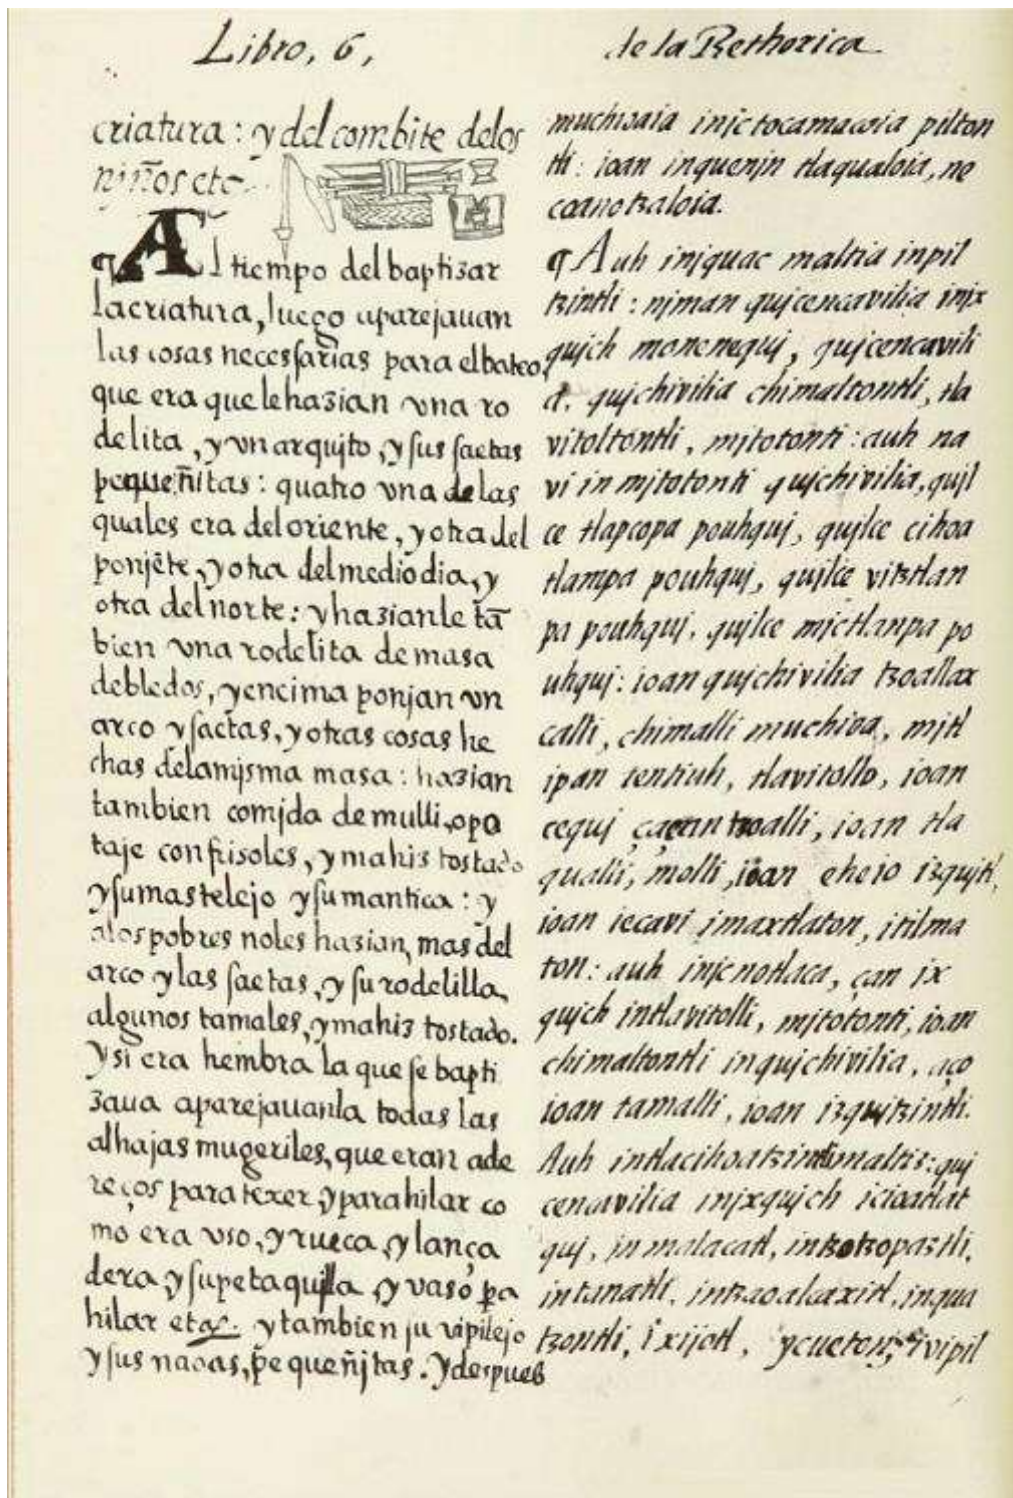 Libro, 6,
de la Rethorica
criatura: y del combite delos
njños etc.
¶ Al tiempo del baptizar
la criatura, luego aparejauan
las cosas necessarias para el bateo,
que era que le hazian vna ro
delita, y vn arqujto, y sus saetas
pequeñitas: quatro vna de las
quales era del oriente, y otra del
ponjẽte, y otra del mediodia, y
otra del norte: y hazianle tã
bien vna rodelita de masa
de bledos, y encima ponjan vn
arco y saetas, y otras cosas he
chas dela mjsma masa: hazian
tambien comjda de mulli, o po
taje con frisoles, y mahiz tostado
y su mastelejo y su mantica: y
alos pobres no les hazian, mas del
arco y las saetas, y su rodelilla,
algunos tamales, y mahiz tostado.
Y si era hembra la que se bapti
zaua aparejauanla todas las
alhajas mugeriles, que eran ade
reços para texer, y para hilar co
mo era vso, y rueca, y lança
dera, y su petaqujlla, y vaso pa
hilar etc. y tambien su vipilejo
y sus naoas, pequeñjtas. Y despues
muchioaia injc tocamacoia pilton
tli: ioan inquenjn tlaqualoia, ne
coanotzaloia.
¶ Auh injquac maltia inpil
tzintli: njman qujcencavilia injx
qujch monenequj, qujcencavili
a. qujchivilia chimaltontli, tla
vitoltontli, mjtotonti: auh na
vi in mjtotonti qujchivilia, qujl
ce tlapcopa pouhquj, qujlce cihoa
tlampa pouhquj, qujlce vitztlan
pa pouhquj, qujlce mictlanpa po
uhquj: ioan qujchivilia tzoallax
calli, chimalli muchioa, mjtl
ipan tentiuh, tlavitollo, ioan
cequj çaçan tzoalli, ioan tla
qualli, molli, ioan eheio izqujtl,
ioan iecavi imaxtlaton, itilma
ton: auh injcnotlaca, çan ix
qujch intlavitolli, mjtotonti, ioan
chimaltontli inqujchivilia, aço
ioan tamalli, ioan izqujtzintli.
Auh intlacihoatzintli maltis: quj
cencavilia injxqujch icioatlat
quj, in malacatl, intzotzopaztli,
intanatli, intzaoalcaxitl, inqua
tzontli, ixijotl, ycueton, yvipil